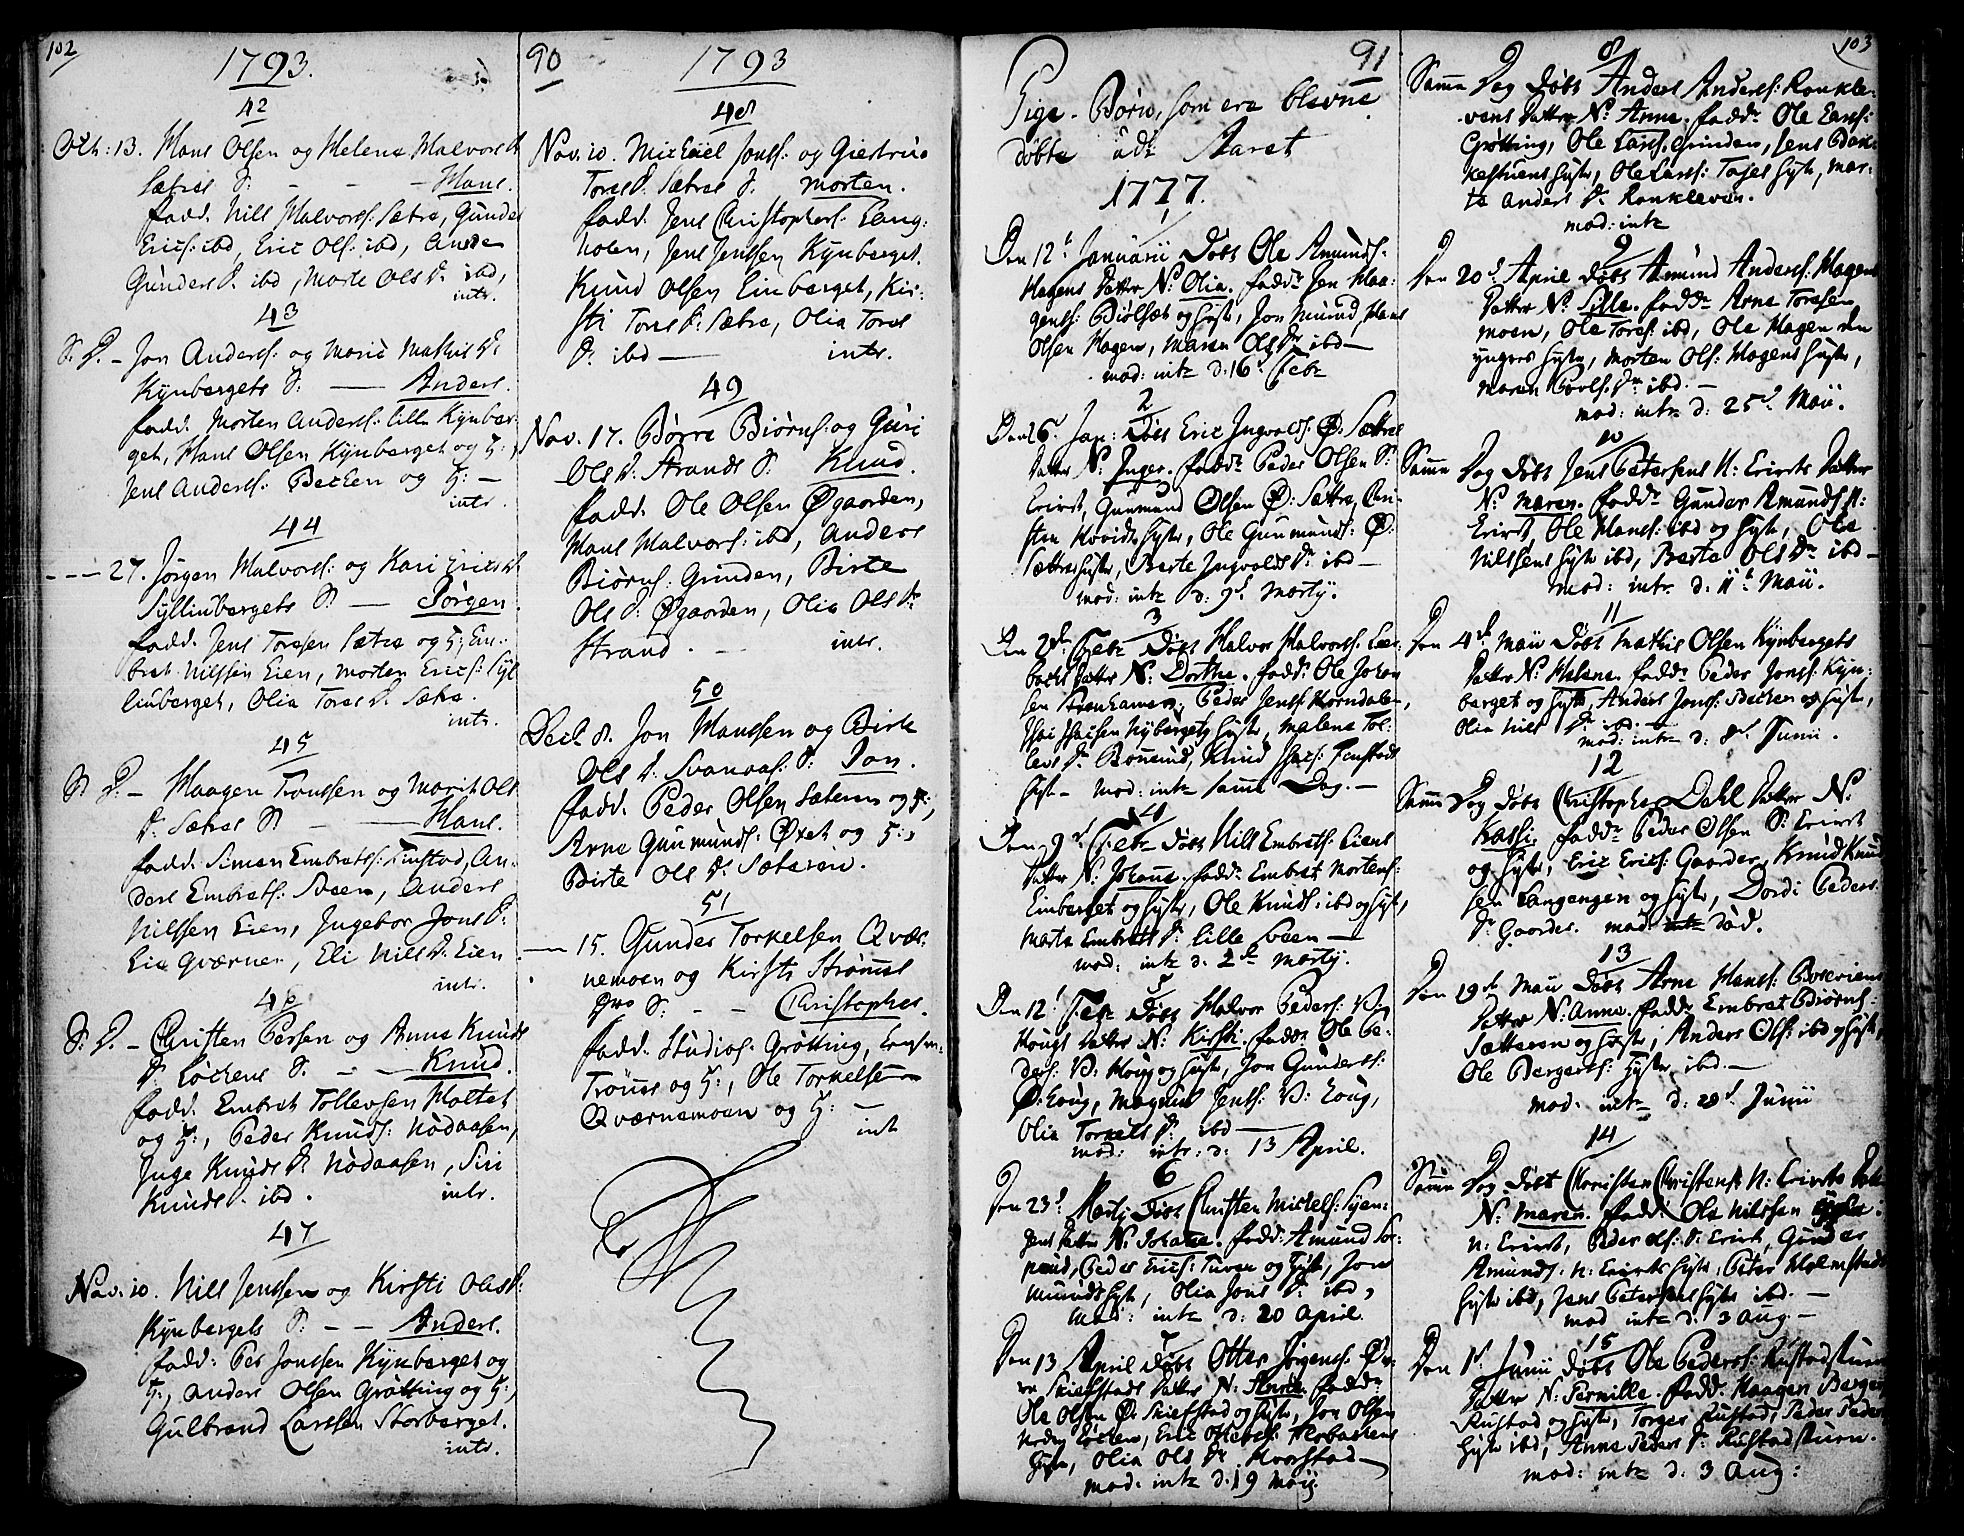 102
1793.
42
Octb: 13. Hans Olsen og Helene Halvors D.
Sætres S: - - - Hans.
fadd. Nils Halvors: Sætre, Gunder
Erics: ibd, Eric Ols: ibd, Anne
Gunders D. ibd, Marte Ols D. ibd,
intr.
43
S. D. - Jon Anders: og Marie Mathis D.
Kynbergets S: — Anders.
fadd. Morten Anders: lille Kynber-
get, Hans Olsen Kynberget og H:,
Jens Anders: Becken og H: -
intr.
44
--- 27. Jørgen Halvors: og Kari Erics D.
Syllinbergets S. — Jørgen.
fadd. Jens Toresen Sætre og H:, Em-
bret Nilssen Eien, Morten Erics: Syl-
linberget, Olia Tores D. Sætre.
intr.
45
S. D. - Haagen Tronssen og Marit Ols
D. Sætres S. - — Hans.
fadd. Simen Embrets: Finstad, An-
ders Embrets: Sveen, Anders
Nilssen Eien, Ingebor Jons D.
Qværnen, Eli Nils D. Eien
intr.
46
S. D. - Christen Persen og Anne Knuds
D. Løckens S. - - Knud.
fadd. Embret Tollevsen Holtet
og H:, Peder Knuds: Nodaasen,
Inge Knuds D. Nodaasen, Siri
Knuds D. ibd. intr.
47
Nov. 10. Nils Jenssen og Kirsti Ols D:
Kynbergets S: - - Anders.
fadd: Per Jonssen Kynberget og
H:, Anders Olsen Grøtting og H:,
Gulbrand Larssen Storberget.
intr.
90
1793
48
Nov. 10. Michael Jons: og Giertrue
Tores D. Sætres S. Morten.
fadd. Jens Christophers: Lang-
holen, Jens Jenssen Kynberget.
Knud Olsen Einberget, Kir-
sti Tores D. Sætre, Olia Tores
D. ibd — intr.
49
Nov. 17. Børre Biørns: og Guri
Ols D. Strands S. Knud.
fadd. Ole Olsen Øgaarden,
Hans Halvors: ibd, Anders
Biørns: Grinden, Birte
Ols D. Øgaarden, Olia Ols D.
Strand. - intr.
50
Decb. 8. Jon Hanssen og Birte
Ols D. Svanaas: S. Jon.
fadd. Peder Olsen Sæteren og H:,
Arne Gunmunds: Øxet og H:,
Birte Ols D. Sæteren.
51
— 15. Gunder Torkelsen Qvær-
nemoen og Kirsti Strømsl
S: - - Christopher.
fadd. Studios: Grøtting,
Trønes og H:, Ole Torkelsen
Qværnemoen og H: —
intr
91
Pige-Børn, som ere blevne
døbte udi Aaret
1777.
1
Den 12t Januarii døbt Ole Amunds:
Hagens datter N: Olia. fadd: Jen Haa-
gens: Biølset og hustr, Jon Mund, Hans
Olsen Hagen, Maren Ols D: ibd —
mod: intr: d: 16 Febr
2
Den 6. Jan: døbt Eric Ingvolds: Ø: Sætres
datter N: Inger. fadd: Peder Olsen S:
Erirst, Gunmund Olsen Ø: Sættre, Chri-
sten Hovids hustr, Ole Gunmunds: Ø:
Sættres hustr, Berte Ingvolds D: ibd —
mod: intr d: 9d Martij.
3
Den 2d Febr døbt Halvor Halvors:
datter N: Dorthe. fadd: Ole Johan
sen, Peder Jens: Korndalen,
Nybergets hustr, Malene Tol-
levs D:, Knud Finstads
hust - mod: intr samme Dag. —
4
Den 9d Febr døbt Nils Embrets: Eiens
datter N: Johane. fadd: Embret Mortens:
Einberget og hustr, Ole Knuds: ibd og hust,
Marte Embrets D: lille Sveen —
mod: intr d: 2d Martij.
5
Den 12t Febr døbt Halvor Peders: V:
Hougs datter N: Kirsti. fadd: Ole Pe-
ders: V: Houg og hustr, Jon Gunders:
Ø: Houg, Magnus Jens: V: Houg,
Olia Torkels D: ibd —
mod: intr: d: 13 April.
6
Den 23d Martj døbt Christen Mickels: Syen-
jens datter N: Johane. fadd: Amund
, Peder Erics: Furen og Hust, Jon
Munds hust, Olia Jons D: ibd,
mod: intr d: 20 April
7
Den 13 April døbt Otter Jørgens: Øv-
re Skiefstads datter N: Anne. fadd:
Ole Olsen Ø: Skiefstad og hustr, Jon Olsen
Hustr, Olia Ols D: Kverstad —
mod: intr d: 19 Maij
103
8
Samme Dag døbt Anders Anders: Ronkle-
vens datter N: Anne. fadd: Ole Lars:
Grøtting, Ole Lars: Grinden, Jens Bak-
kestuens hustr, Ole Lars: hustr, Mar-
te Anders D: Ronkleven.
mod: intr
9
Den 20d April døbt Amund Anders: Hagens
datter N: Sille. fadd: Arne Toresen
moen, Ole Tores: ibd, Ole Hagen den
yngres hustr, Morten Ols: Hagens hustr,
Maren Povls D: ibd. -
mod: intr: d: 25d Maii.
10
Samme Dag døbt Jens Petersens N: Erirsts datter
N: Maren. fadd: Gunder Amunds: N:
Erirst, Ole Hans: ibd og hustr, Ole
Nilssens hustr ibd, Berte Ols D: ibd —
mod: intr. d: 11t Maii.
11
Den 4d Maii døbt Mathis Olsen Kynbergets
datter N: Helene. fadd: Peder Jons: Kyn-
berget og hustr, Anders Jons: Becken og hustr,
Olia Nils D: ibd. -
mod: intr d: 8d Junii.
12
Samme Dag døbt Christopher Dahl datter N:
Kassi. fadd: Peder Olsen S: Erirst
og hustr, Eric Erics: Gaarder, Knud Knud
sen Langengen og hustr, Dordi Peders
D: Gaarder. mod: død.
13
Den 19d Maii døbt Arne Hans:
datter N: Anne. fadd: Embret Biørns:
Sætteren og hustr, Anders Ols: ibd og hustr,
Ole Bergers: hustr ibd. —
mod: intr d: 28d Junii
14
Samme Dag døbt Christen Christens: N: Erirsts datter
N: Maren. fadd: Ole Nilssen
N: Erirst, Peder Ols: S: Erirst, Gunder
Amunds: N: Erirsts hustr, Peter Holmstads
hustr ibd, Jens Petersens hustr ibd. —
mod intr d: 3 Aug —
15
Den 1d Junii døbt Ole Peders: Rustadstuen
datter N: Pernille. fadd: Haagen Berger
Rustad og hustr, Torger Rustad, Peder Peders
hustr ibd, Anne Peders D: Rustadstuen.
mod: intr d: 3 Aug: